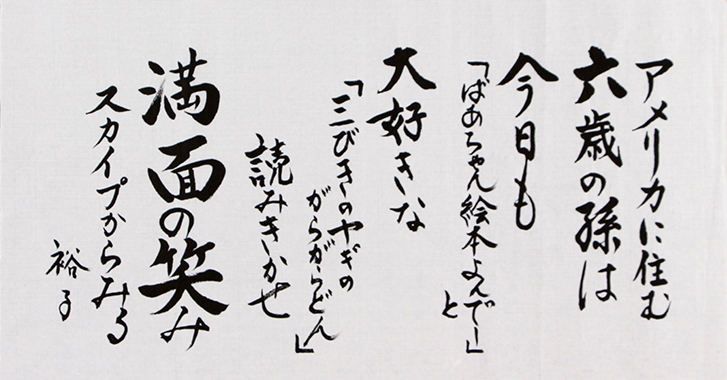 アメリカに住む
六歳の孫は
今日も
「ばあちゃん絵本よんでー」
と
大好きな
「三びきのヤギの
がらがらどん」
読みきかせ
満面の笑み
スカイプからみる
裕子